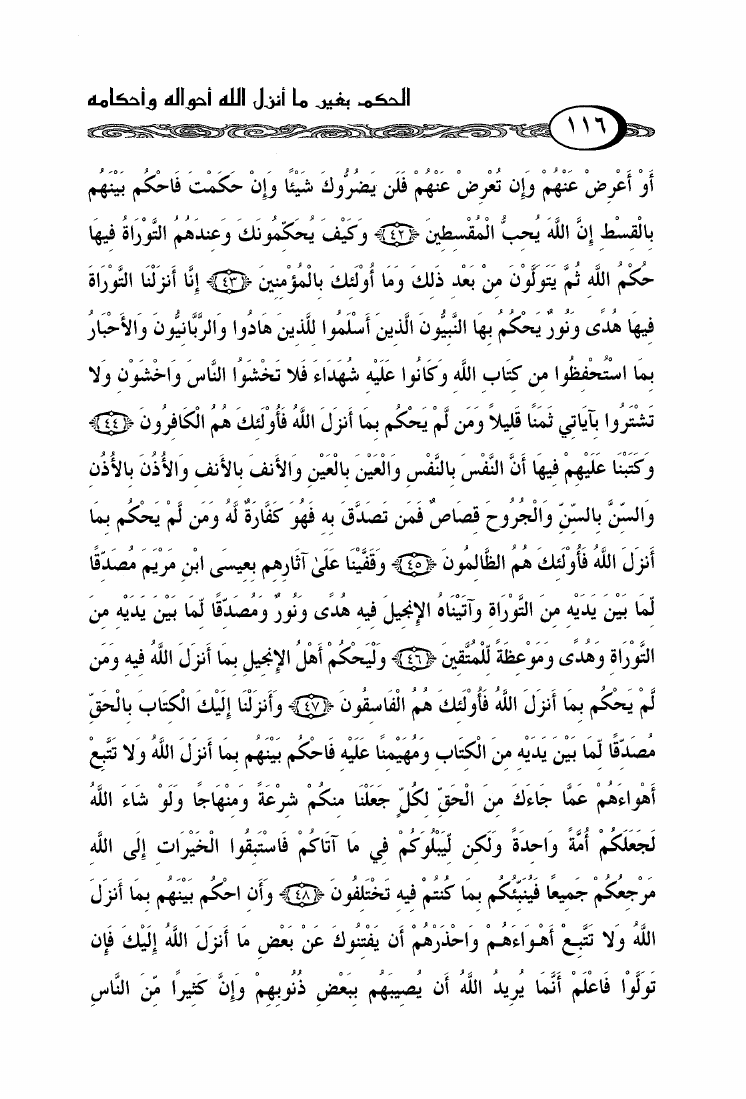 الحكم بغير ما أنزل الله أحواله وأحكامه
١١٦
أَوْ أَعْرِضْ عَنْهُمْ وَإِن تُعْرِضْ عَنْهُمْ فَلَن يَضُرُّوكَ شَيْئًا وَإِنْ حَكَمْتَ فَاحْكُم بَيْنَهُم
بِالْقِسْطِ إِنَّ اللَّهَ يُحِبُّ الْمُقْسِطِينَ ﴿٤٢﴾ وَكَيْفَ يُحَكِّمُونَكَ وَعِندَهُمُ التَّوْرَاةُ فِيهَا
حُكْمُ اللَّهِ ثُمَّ يَتَوَلَّوْنَ مِنْ بَعْدِ ذَلِكَ وَمَا أُولَئِكَ بِالْمُؤْمِنِينَ ﴿٤٣﴾ إِنَّا أَنزَلْنَا التَّوْرَاةَ
فِيهَا هُدًى وَنُورٌ يَحْكُمُ بِهَا النَّبِيُّونَ الَّذِينَ أَسْلَمُوا لِلَّذِينَ هَادُوا وَالرَّبَّانِيُّونَ وَالأَحْبَارُ
بِمَا اسْتُحْفِظُوا مِن كِتَابِ اللَّهِ وَكَانُوا عَلَيْهِ شُهَدَاءَ فَلا تَخْشَوُا النَّاسَ وَاخْشَوْنِ وَلا
تَشْتَرُوا بِآيَاتِي ثَمَنًا قَلِيلاً وَمَن لَّمْ يَحْكُم بِمَا أَنزَلَ اللَّهُ فَأُولَئِكَ هُمُ الْكَافِرُونَ ﴿٤٤﴾
وَكَتَبْنَا عَلَيْهِمْ فِيهَا أَنَّ النَّفْسَ بِالنَّفْسِ وَالْعَيْنَ بِالْعَيْنِ وَالأَنفَ بِالأَنفِ وَالأُذُنَ بِالأُذُنِ
وَالسِّنَّ بِالسِّنِّ وَالْجُرُوحَ قِصَاصٌ فَمَن تَصَدَّقَ بِهِ فَهُوَ كَفَّارَةٌ لَّهُ وَمَن لَّمْ يَحْكُم بِمَا
أَنزَلَ اللَّهُ فَأُولَئِكَ هُمُ الظَّالِمُونَ ﴿٤٥﴾ وَقَفَّيْنَا عَلَىٰ آثَارِهِم بِعِيسَى ابْنِ مَرْيَمَ مُصَدِّقًا
لِّمَا بَيْنَ يَدَيْهِ مِنَ التَّوْرَاةِ وَآتَيْنَاهُ الإِنجِيلَ فِيهِ هُدًى وَنُورٌ وَمُصَدِّقًا لِّمَا بَيْنَ يَدَيْهِ مِنَ
التَّوْرَاةِ وَهُدًى وَمَوْعِظَةً لِّلْمُتَّقِينَ ﴿٤٦﴾ وَلْيَحْكُمْ أَهْلُ الإِنجِيلِ بِمَا أَنزَلَ اللَّهُ فِيهِ وَمَن
لَّمْ يَحْكُم بِمَا أَنزَلَ اللَّهُ فَأُولَئِكَ هُمُ الْفَاسِقُونَ ﴿٤٧﴾ وَأَنزَلْنَا إِلَيْكَ الْكِتَابَ بِالْحَقِّ
مُصَدِّقًا لِّمَا بَيْنَ يَدَيْهِ مِنَ الْكِتَابِ وَمُهَيْمِنًا عَلَيْهِ فَاحْكُم بَيْنَهُم بِمَا أَنزَلَ اللَّهُ وَلا تَتَّبِعْ
أَهْوَاءَهُمْ عَمَّا جَاءَكَ مِنَ الْحَقِّ لِكُلٍّ جَعَلْنَا مِنكُمْ شِرْعَةً وَمِنْهَاجًا وَلَوْ شَاءَ اللَّهُ
لَجَعَلَكُمْ أُمَّةً وَاحِدَةً وَلَكِن لِّيَبْلُوَكُمْ فِي مَا آتَاكُمْ فَاسْتَبِقُوا الْخَيْرَاتِ إِلَى اللَّهِ
مَرْجِعُكُمْ جَمِيعًا فَيُنَبِّئُكُم بِمَا كُنتُمْ فِيهِ تَخْتَلِفُونَ ﴿٤٨﴾ وَأَنِ احْكُم بَيْنَهُم بِمَا أَنزَلَ
اللَّهُ وَلا تَتَّبِعْ أَهْوَاءَهُمْ وَاحْذَرْهُمْ أَن يَفْتِنُوكَ عَنْ بَعْضِ مَا أَنزَلَ اللَّهُ إِلَيْكَ فَإِن
تَوَلَّوْا فَاعْلَمْ أَنَّمَا يُرِيدُ اللَّهُ أَن يُصِيبَهُم بِبَعْضِ ذُنُوبِهِمْ وَإِنَّ كَثِيرًا مِّنَ النَّاسِ